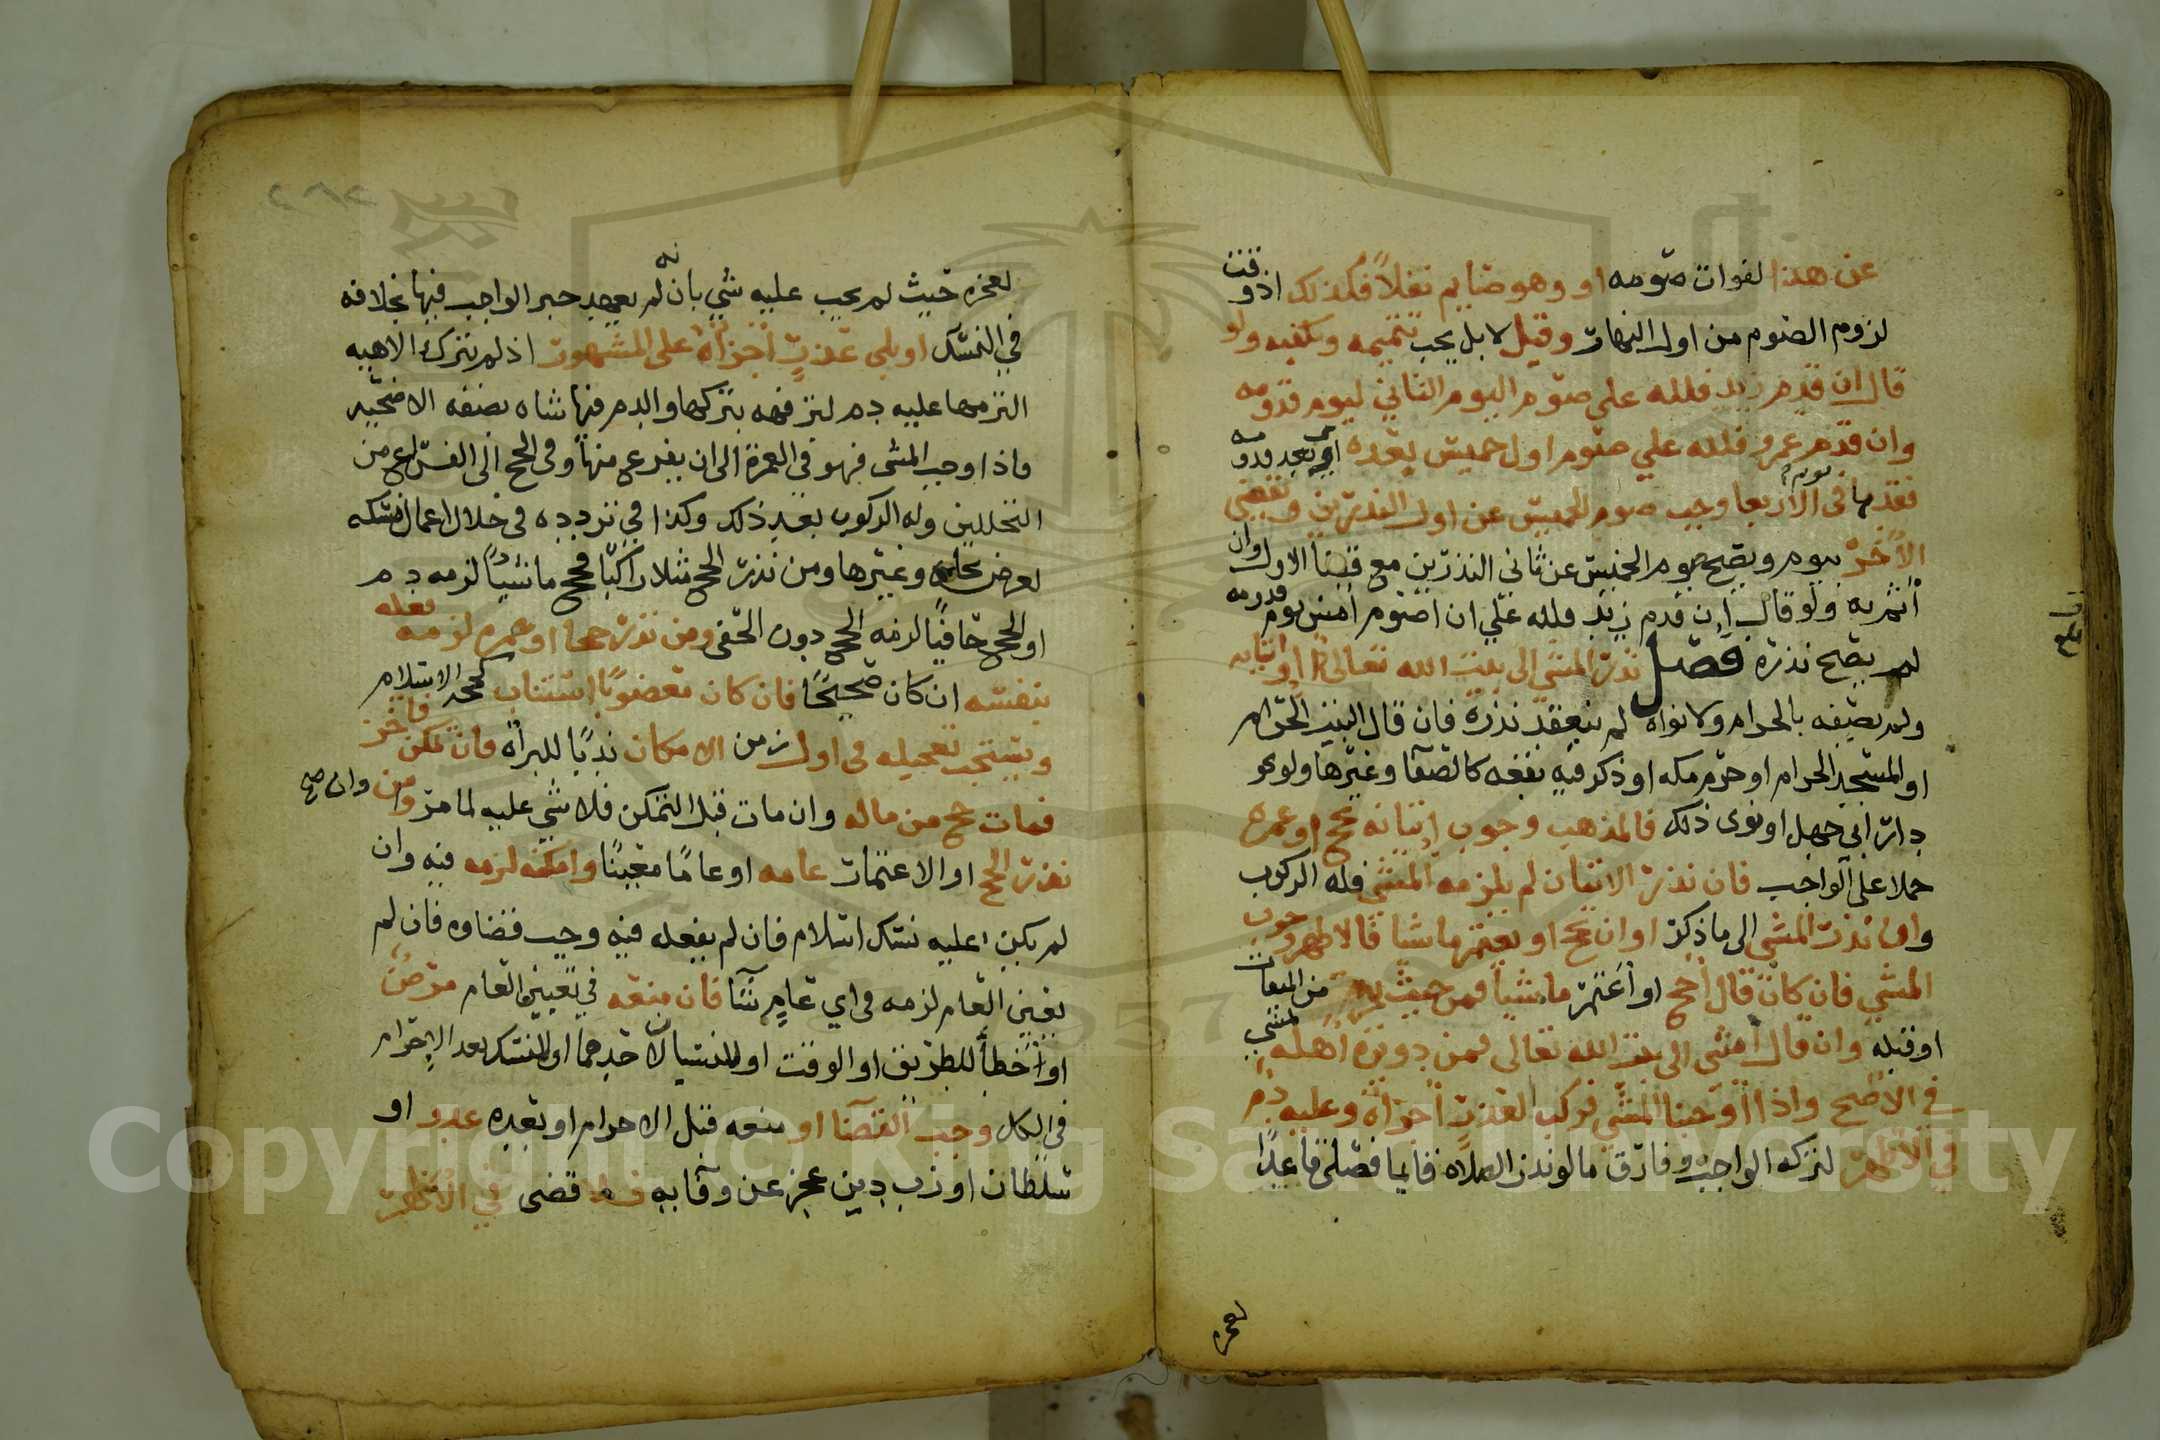 عن هذا لفوات صومه او وهو صايم نفلا فكذلك اذ وقت
لزوم الصوم من اول النهار وقيل لا بل يجب تتميمه ويكفيه ولو
قال ان قدم زيد فلله علي صوم اليوم الثاني ليوم قدومه
وان قدم عمرو فلله علي صوم اول خميس بعده اي بعد قدومه
فقدما في الاربعا وجب صوم الخميس عن اول النذرين ويقضي
الاخر بيوم ويصح صوم الخميس عن ثاني النذرين مع قضا الاول وان
اثم به ولو قال ان قدم زيد فلله علي ان اصوم امس يوم قدومه
لم يصح نذره فصل نذر المشي الى بيت الله تعالى او اتيانه
ولم يصفه بالحرام ولا نواه لم ينعقد نذره فان قال البيت الحرام
او المسجد الحرام او حرم مكه او ذكر فيه بقعه كالصفا وغيرها ولو نحو
دار ابي جهل او نوى ذلك فالمذهب وجوب اتيانه بحج او عمره
حملا على الواجب فان نذر الاتيان لم يلزمه المشي فله الركوب
وان نذر المشي الى ما ذكر او ان يحج او يعتمر ماشيا فالاظهر وجوب
المشي فان كان قال احج او اعتمر ماشيا فمن حيث يحرم من الميقات
او قبله وان قال امشي الى بيت الله تعالى فمن دويرة اهله يمشي
في الاصح واذا اوجبنا المشي فركب لعذر اجزاه وعليه دم
في الاظهر لتركه الواجب وفارق ما لو نذر الصلاه قايما فصلى قاعدا
لعجزه
لعجزه حيث لم يجب عليه شي بانه لم يعهد جبر الواجب فيها بخلافه
في النسك او بلى عذر اجزاه على المشهور اذ لم يترك الا هيه
التزمها عليه دم لترفهه بتركها والدم فيها شاه بصفه الاضحيه
واذا اوجب المشي فهو في العمرة الى ان يفرغ منها وفي الحج الى الفراغ من
التحللين وله الركوب بعد ذلك وكذا في تردده في خلال اعمال نسكه
لغرض وغيرها ومن نذر الحج مثلا راكبا فحج ماشيا لزمه دم
او الحج حافيا لزمه الحج دون الحفى ومن نذر حجا او عمره لزمه فعله
بنفسه ان كان صحيحا فان كان معضوبا استناب كحجه الاسلام
ويستحب تعجيله في اول زمن الامكان ندبا للبراة فان تمكن فاخر
فمات حج من ماله وان مات قبل التمكن فلا شي عليه لما مر ومن وان صح
نذر الحج او الاعتمار عامه او عاما معينا وامكنه لزمه فيه وان
لم يكن عليه نسك اسلام فان لم يفعله فيه وجب قضاوه فان لم
يعين العام لزمه في اي عام شا فان منعه في تعيين العام مرض
او اخطأ للطريق او الوقت او النسيان لاحدهما او للنسك بعد الاحرام
في الكل وجب القضا او منعه قبل الاحرام او بعده عدو او
سلطان او رب دين عجز عن وفايه فلا قضى في الاظهر
Copyright © King Saud University
1957